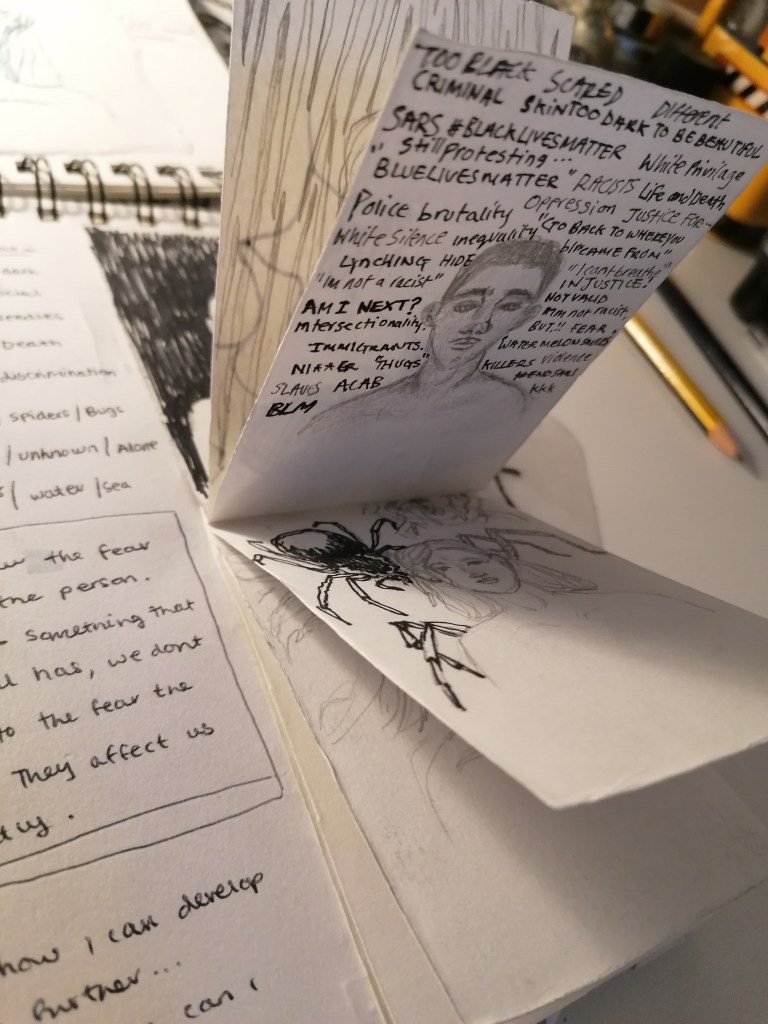 TOO BLACK SCARED Different
CRIMINAL SKIN TOO DARK TO BE BEAUTIFUL
SARS #BLACKLIVESMATTER White Privilage
"Still protesting...
BLUELIVESMATTER" RACISTS Life and Death
Police brutality Oppression JUSTICE FOR--
White Silence inequality "GO BACK TO WHERE YOU
LYNCHING HIDE CAME FROM"
"Im not a racist" "I cant breathe"
AM I NEXT? INJUSTICE.
Intersectionality. NOT VALID
IMMIGRANTS. I'm not racist
BUT!! FEAR
NI**ER "THUGS" WATERMELON SMILES
SLAVES ACAB KILLERS Violence
BLM #ENDSARS
KKK
needles
Death
discrimination
/ spiders / Bugs
/ unknown / Alone
/ water / sea
the fear
the person.
- something that
has, we dont
to the fear the
They affect us
.
how i can develop
further...
can i